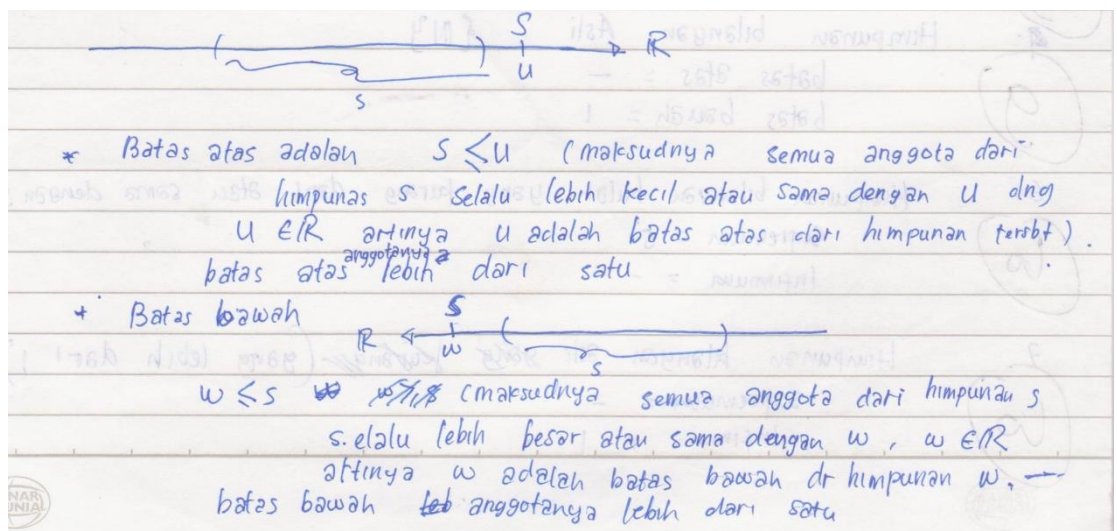 S
ℝ
U
s
* Batas atas adalah S ≤ U (maksudnya semua anggota dari
himpunas s selalu lebih kecil atau sama dengan U dng
U ∈ ℝ artinya U adalah batas atas dari himpunan tersbt).
batas atas anggotanya lebih dari satu
* Batas bawah
S
ℝ
w
s
w ≤ s (maksudnya semua anggota dari himpunan s
s.elalu lebih besar atau sama dengan w, w ∈ ℝ
artinya w adalah batas bawah dr himpunan w.
batas bawah anggotanya lebih dari satu